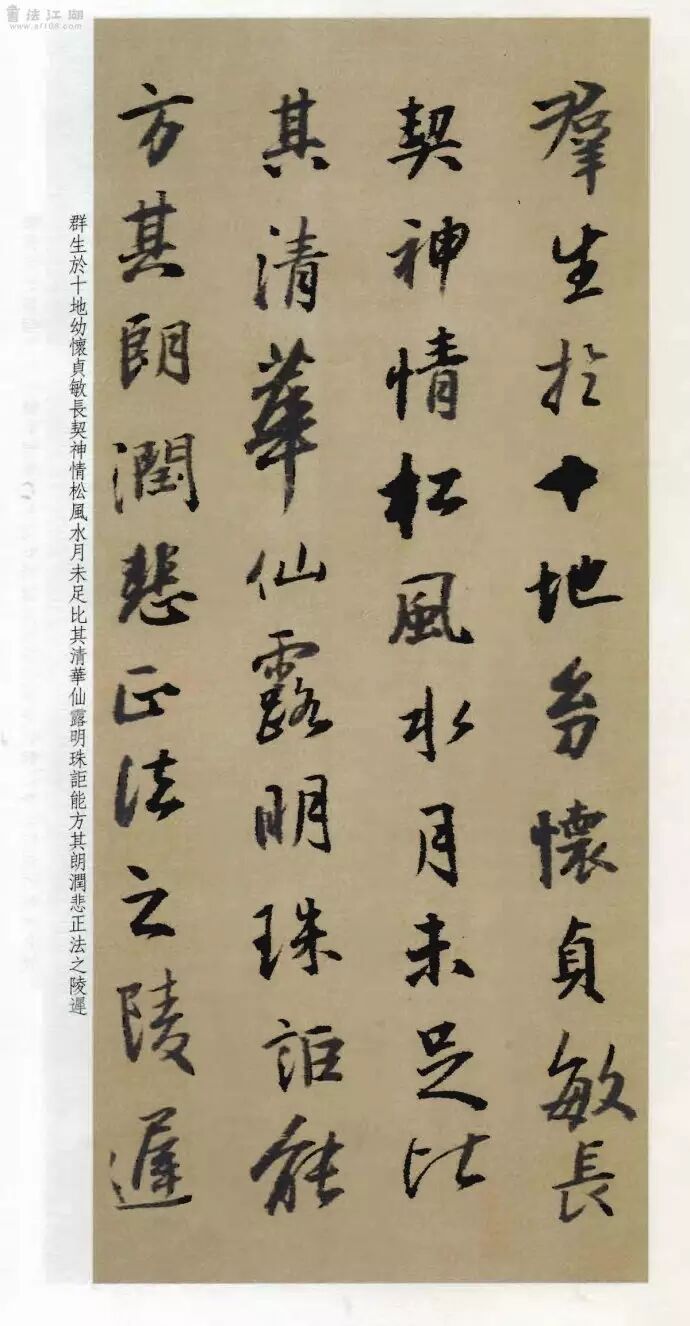 書法江湖
www.sf108.com
羣生於十地幼懷貞敏長
契神情松風水月未足比
其清華仙露明珠詎能
方其朗潤悲正法之陵遲
群生於十地幼懷貞敏長契神情松風水月未足比其清華仙露明珠詎能方其朗潤悲正法之陵遲